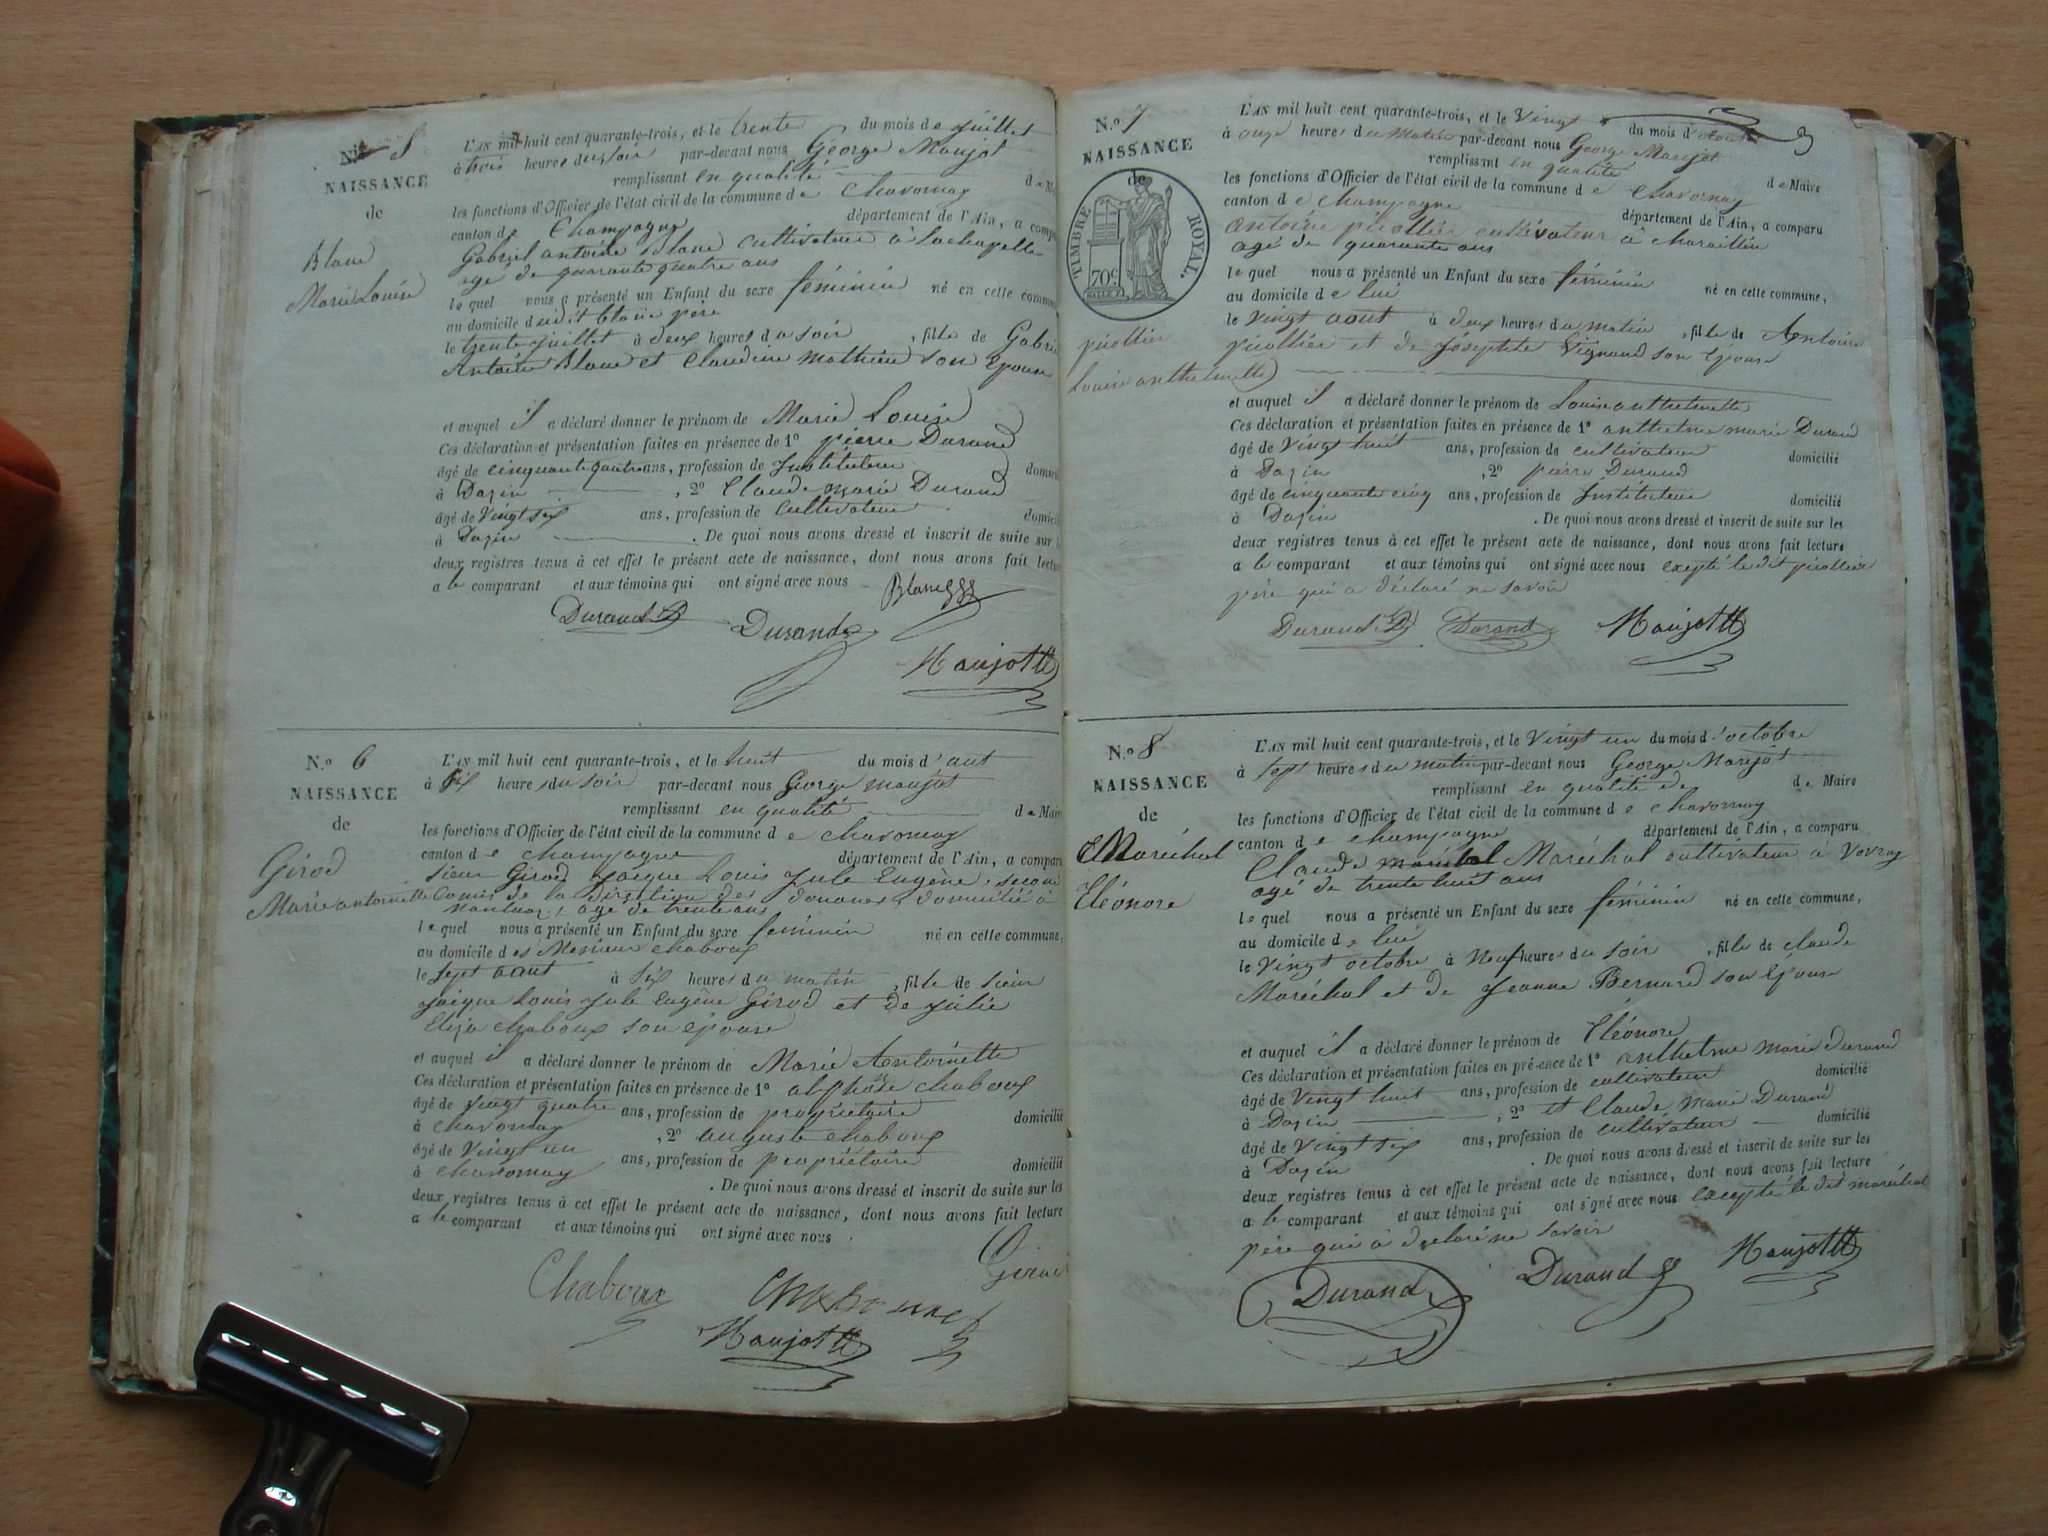 N.º 5
NAISSANCE
de
Blanc
Marie Louise
L'AN mil huit cent quarante-trois, et le trente du mois de juillet
à trois heures du soir par-devant nous George Maujot
remplissant en qualité de Maire
les fonctions d'Officier de l'état civil de la commune de Chavornay
canton de Champagne département de l'Ain, a comparu
Gabriel antoine Blanc cultivateur à Lachapelle
agé de quarante quatre ans
lequel nous a présenté un Enfant du sexe féminin né en cette commune
au domicile dudit blanc père
le trente juillet à deux heures du soir, fille de Gabriel
Antoine Blanc et Claudine Mathieu son Epouse
et auquel il a déclaré donner le prénom de Marie Louise
Ces déclaration et présentation faites en présence de 1º pierre Durand
âgé de cinquante quatre ans, profession de Instituteur domicilié
à Dazin, 2º Claude marie Durand
âgé de Vingt six ans, profession de cultivateur domicilié
à Dazin. De quoi nous avons dressé et inscrit de suite sur les
deux registres tenus à cet effet le présent acte de naissance, dont nous avons fait lecture
a le comparant et aux témoins qui ont signé avec nous
Blanc
Durand Durand
Maujot
N.º 6
NAISSANCE
de
Girod
Marie antoinette
L'AN mil huit cent quarante-trois, et le huit du mois d'aout
à six heures du soir par-devant nous George maujot
remplissant en qualité de Maire
les fonctions d'Officier de l'état civil de la commune de Chavornay
canton de champagne département de l'Ain, a comparu
sieur Girod Jacque Louis Jule Eugène, second
Comis de la Direction des douanes, domicilié à
nantua, agé de trente ans
lequel nous a présenté un Enfant du sexe féminin né en cette commune,
au domicile des Messieur chaboux
le sept aout à six heures du matin, fille de sieur
Jacque Louis Jule Eugène Girod et de Julie
Eliza chaboux son épouse
et auquel il a déclaré donner le prénom de Marie Antoinette
Ces déclaration et présentation faites en présence de 1º alphonse chaboux
âgé de vingt quatre ans, profession de propriétaire domicilié
à chavornay, 2º auguste chaboux
âgé de Vingt un ans, profession de propriétaire domicilié
à chavornay. De quoi nous avons dressé et inscrit de suite sur les
deux registres tenus à cet effet le présent acte de naissance, dont nous avons fait lecture
a le comparant et aux témoins qui ont signé avec nous.
Girod
Chaboux
Maujot
N.º 7
NAISSANCE
de
TIMBRE ROYAL.
70c
picollier
Louise anthelmette
L'AN mil huit cent quarante-trois, et le Vingt du mois d'Aout
à onze heures du Matin par-devant nous George Maujot
remplissant en qualité de Maire
les fonctions d'Officier de l'état civil de la commune de Chavornay
canton de Champagne département de l'Ain, a comparu
Antoine picollier cultivateur à charaillin
agé de quarante ans
lequel nous a présenté un Enfant du sexe féminin né en cette commune,
au domicile de lui
le vingt aout à deux heures du matin, fille de Antoine
picollier et de Josephte Vignand son Epouse
et auquel il a déclaré donner le prénom de Louise anthelmette
Ces déclaration et présentation faites en présence de 1º anthelme marie Durand
âgé de Vingt huit ans, profession de cultivateur domicilié
à Dazin, 2º pierre Durand
âgé de cinquante cinq ans, profession de Instituteur domicilié
à Dazin. De quoi nous avons dressé et inscrit de suite sur les
deux registres tenus à cet effet le présent acte de naissance, dont nous avons fait lecture
a le comparant et aux témoins qui ont signé avec nous exepté le dit picollier
père qui a déclaré ne savoir
Durand Durand Maujot
N.º 8
NAISSANCE
de
Maréchal
Eléonore
L'AN mil huit cent quarante-trois, et le Vingt un du mois d'octobre
à sept heures du matin par-devant nous George Maujot
remplissant en qualité de de Maire
les fonctions d'Officier de l'état civil de la commune de Chavornay
canton de champagne département de l'Ain, a comparu
Claude Maréchal cultivateur à Vovray
agé de trente huit ans
lequel nous a présenté un Enfant du sexe féminin né en cette commune,
au domicile de lui
le Vingt octobre à Neuf heures du soir, fille de claude
Maréchal et de Jeanne Bernard son Epouse
et auquel il a déclaré donner le prénom de Eléonore
Ces déclaration et présentation faites en présence de 1º anthelme marie durand
âgé de Vingt huit ans, profession de cultivateur domicilié
à Dazin, 2º et Claude Marie Durand
âgé de Vingt six ans, profession de cultivateur domicilié
à Dazin. De quoi nous avons dressé et inscrit de suite sur les
deux registres tenus à cet effet le présent acte de naissance, dont nous avons fait lecture
a le comparant et aux témoins qui ont signé avec nous excepté le dit maréchal
père qui a déclaré ne savoir
Durand Durand Maujot